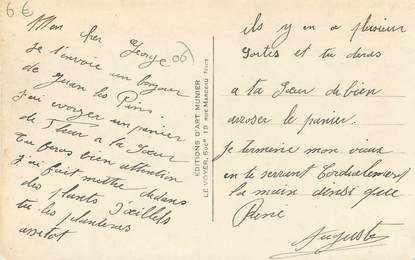 6 €
Mon cher George
je t'envoie un bonjour
de Juan les Pins.
j'ai envoyer un panier
de fleur a ta sœur
Tu feras bien attention
j'ai fait mettre dedans
des plants d'œillets
tu les planteras
aussitot
06
EDITIONS D'ART MUNIER
LE VOYER, Succr 18 rue Marceau Nice
ils y en a plusieur
sortes et tu diras
a ta sœur de bien
arroser le panier.
je termine mon vieux
en te serrant Cordialement
la main ainsi que
René
Auguste